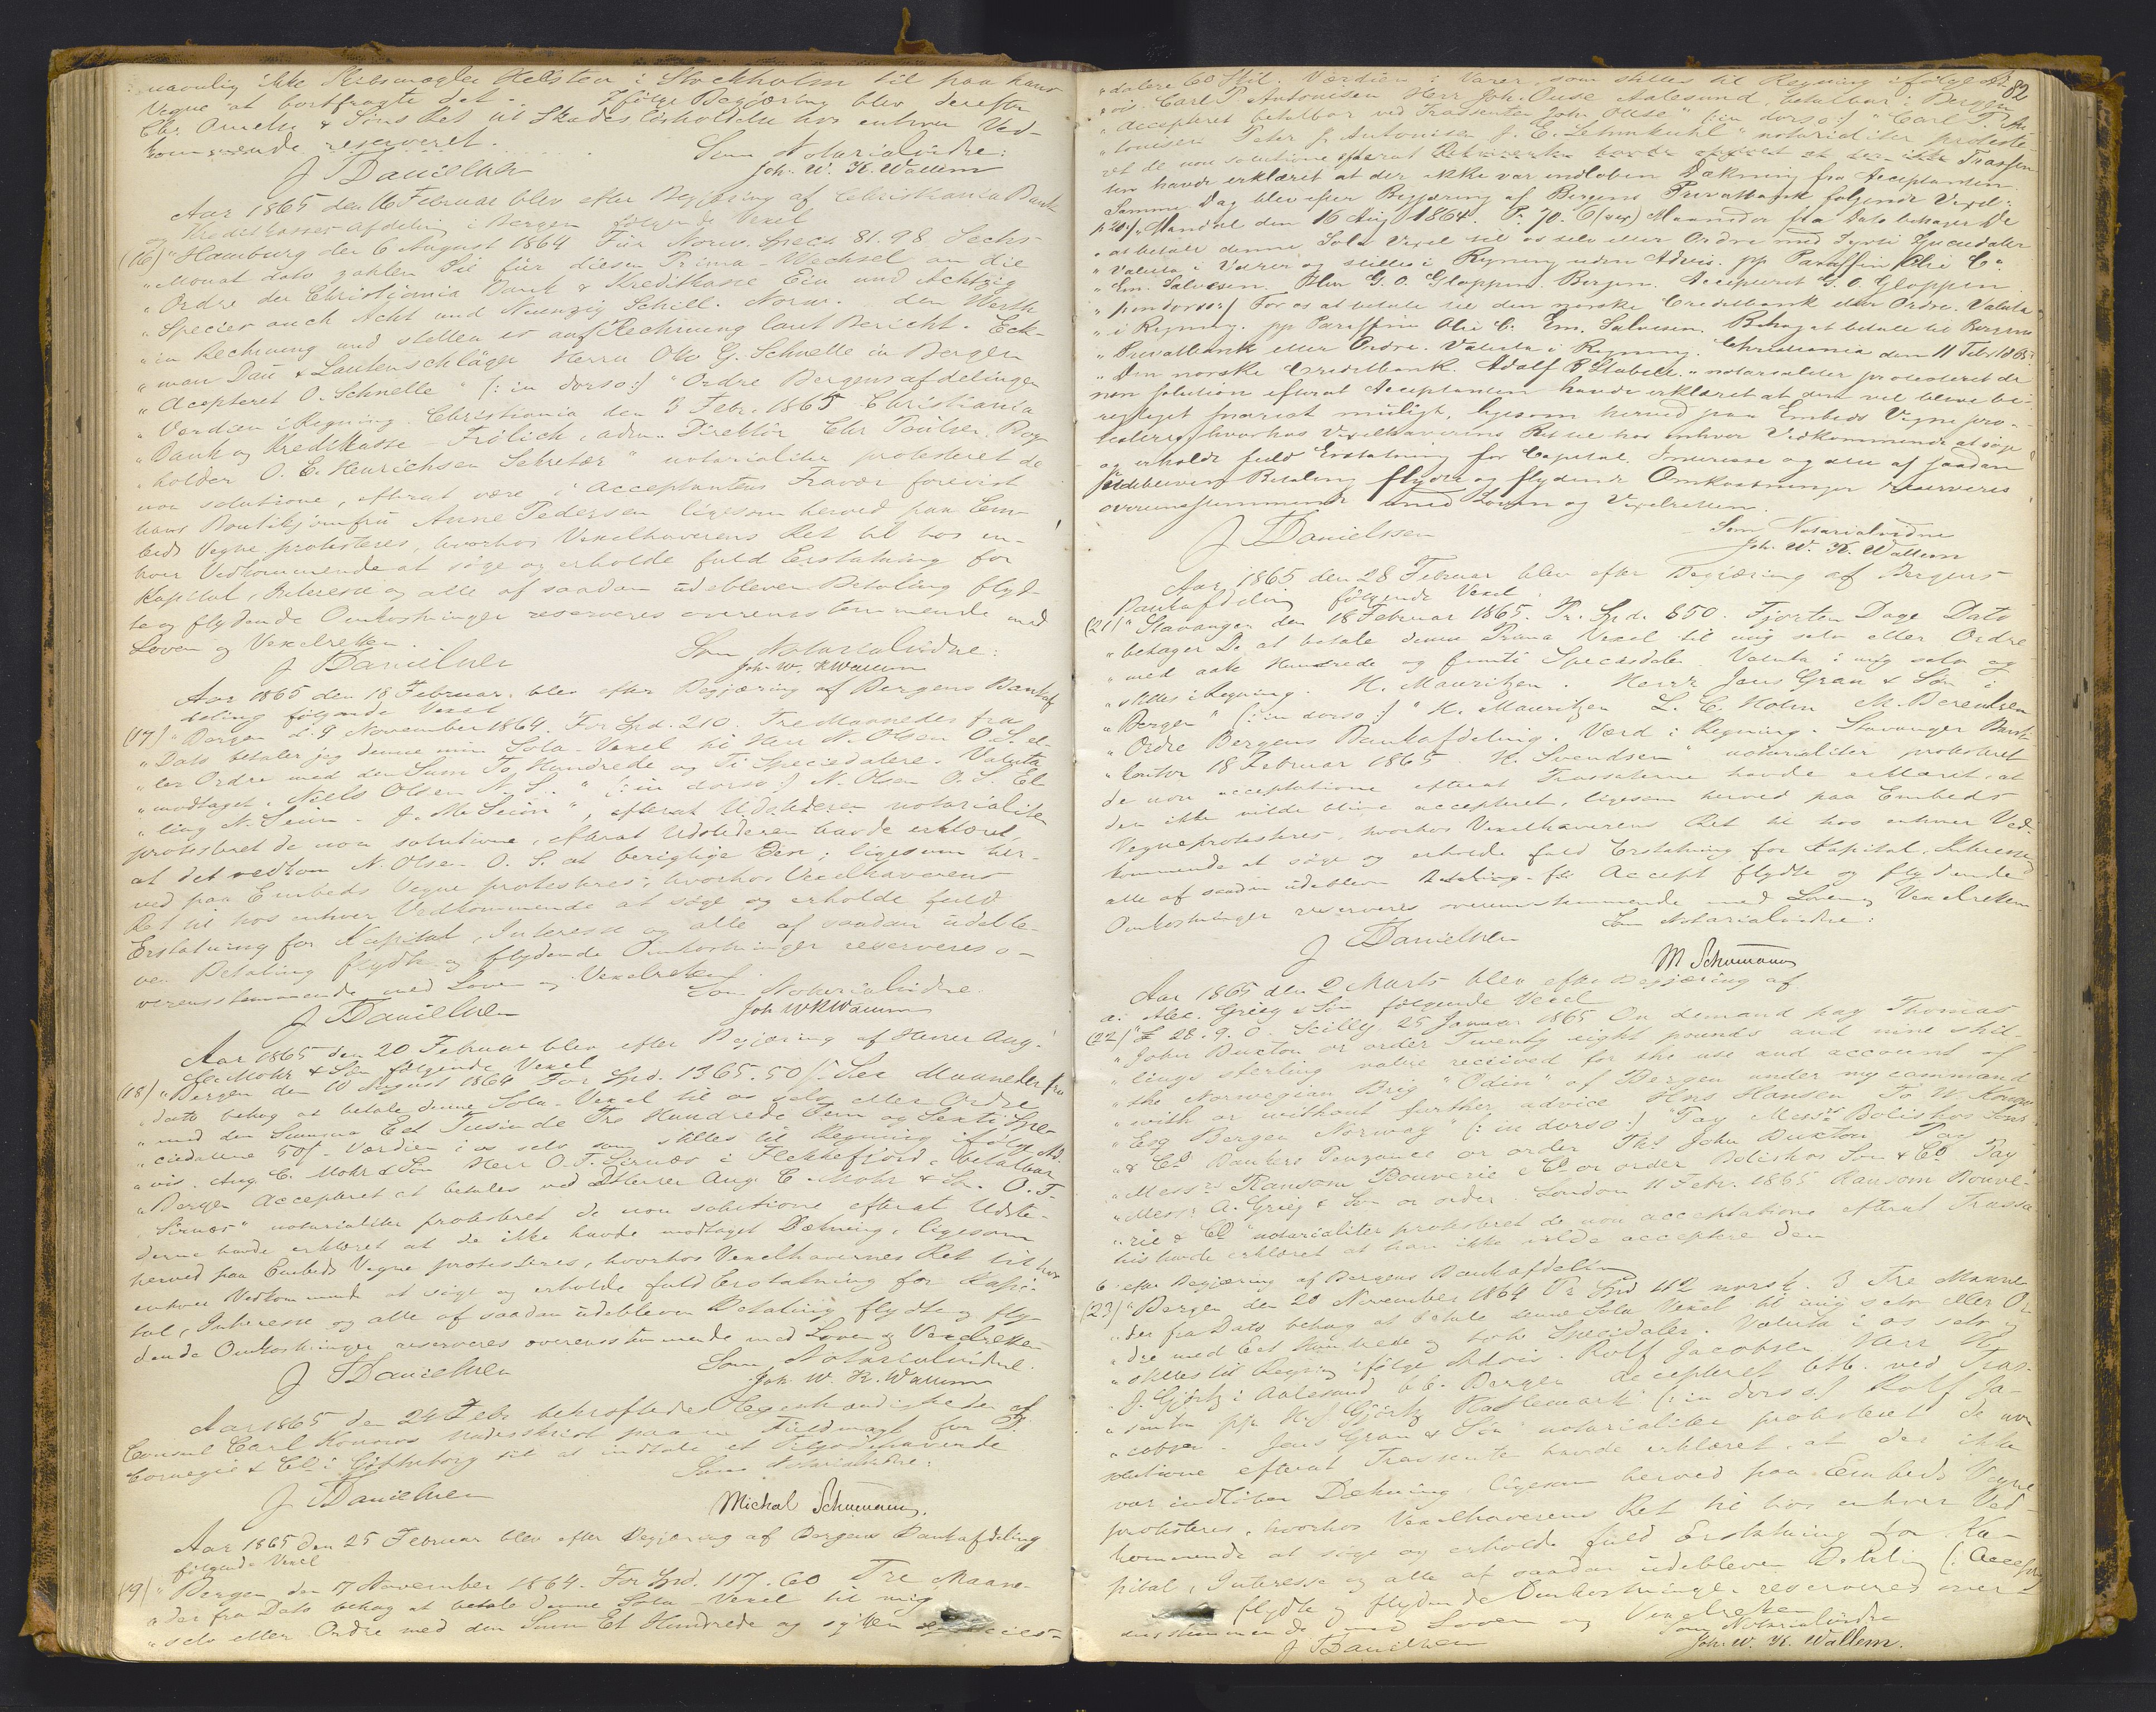 navnlig ikke Skibsmægler Hellsten i Stockholm til paa hans
Vegne at bortfragte det. Ifølge Begjæring blev derefter
Chr. Sons Ret til Skadesløsholdelse hos enhver Ved-
kommende reserveret.
Som Notarialvidne:
J Danielsen Joh. W. K. Wallem
Aar 1865 den 16 Februar blev efter Begjæring af Christiania Bank
og Kreditkasses Afdeling i Bergen følgende Vexel
(16) "Hamburg den 6 August 1864 Für Norw. Specs 81.98 Sechs
"Monat dato zahlen Sie für diesen Prima-Wechsel an die
"Ordre der Christiania Bank & Kreditkasse Ein und Achtzig
"Species auch Acht und Neunzig Schill. Norw. den Werth
"in Rechnung und stellen es auf Rechnung laut Bericht. Eck-
"man Dau & Lautenschläger Herrn Ole G. Schnelle in Bergen
"Acepteret O. Schnelle" (: in dorso:) "Ordre Bergensafdelingen
"Værdien i Regning. Christiania den 3 Febr. 1865 Christiania
"Bank og Kreditkasse Frölich, adm. Direktör Chr Paulsen Bog-
"holder O. E. Henrichsen Sekretær" notarialiter protesteret de
non solutione, efterat være i Acceptantens Fravær forevist
hans Boutikjomfru Anne Pedersen ligesom herved paa Em-
beds Vegne protesteres, hvorhos Vexelhaverens Ret til hos en-
hver Vedkommende at søge og erholde fuld Erstatning for
Kapital, Interesse og alle af saadan udebleven Betaling flyd-
te og flydende Omkostninger reserveres overensstemmende med
Loven og Vexelretten.
Som Notarialvidne:
J Danielsen Joh. W. K Wallem
Aar 1865 den 18 Februar, blev efter Begjæring af Bergens Bankaf-
deling følgende Vexel
(17) "Bergen d. 9 November 1864. For Spd. 210. Tre Maaneder fra
"Dato betaler jeg denne min Sola-Vexel til Herr N. Olsen O. S. el-
"ler Ordre med den Sum To Hundrede og Ti Speciedalere. Valuta
"modtaget. Niels Olsen N. S." (: in dorso:) N. Olsen O. S. El-
"ling N. Seim. J. M. Seim", efterat Udstederen notarialiter
protesteret de non solutione, efterat Udstederen havde erklæret,
at det vedkom N. Olsen O. S. at berigtige Den; ligesom her-
ved paa Embeds Vegne protesteres; hvorhos Vexelhaverens
Ret til hos enhver Vedkommende at søge og erholde fuld
Erstatning for Kapital, Interesse og alle af saadan udeble-
ven Betaling flydte og flydende Omkostninger reserveres o-
verensstemmende med Loven og Vexelretten.
Som Notarialvidne
J Danielsen Joh W K Wallem
Aar 1865 den 20 Februar blev efter Begjæring af Herrer Aug.
C. Mohr & Søn følgende Vexel
(18) "Bergen den 10 August 1864 For Spd. 1365.50 ß. Sex Maaneder fra
"dato behag at betale denne Sola-Vexel til os selv eller Ordre
"med den Summa Eet Tusinde Tre Hundrede Fem og Sexti Spe-
"ciedalere 50 ß. Værdien i os selv som stilles til Regning ifølge Ad-
"vis. Aug. C. Mohr & Søn Herr O. F. Sirnæs i Flekkefjord, betalbar
"Bergen Accepteret at betales ved Herrer Aug. C. Mohr & Søn. O. F.
"Sirnæs" notarialiter protesteret de non solutione efterat Udste-
derne havde erklæret at de ikke havde modtaget Dækning, ligesom
herved paa Embeds Vegne protesteres, hvorhos Vexelhavernes Ret til hos
enhver Vedkommende at søge og erholde fuld Erstatning for Kapi-
tal, Interesse og alle af saadan udebleven Betaling flydte og fly-
dende Omkostninger reserveres overensstemmende med Loven og Vexelretten
Som Notarialvidne.
J Danielsen Joh. W. K. Wallem
Aar 1865 den 24 Febr bekræftedes Egenhændigheden af
Consul Carl Konows Underskrift paa en Fuldmagt for D.
Carnegie & Co i Götheborg til at indtale et Tilgodehavende
Som Notarialvidne:
J Danielsen Michal Schumann.
Aar 1865 den 25 Februar blev efter Begjæring af Bergens Bankafdeling
følgende Vexel
(19) "Bergen den 17 November 1864. For Spd. 117.60 Tre Maane-
"der fra Dato behag at betale denne Sola-Vexel til mig
"selv eller Ordre med den Sum Et Hundrede og sytten Specie-
82
"dalere 60 Skil. Værdien i Varer, som stilles til Regning ifølge Ad-
"vis. Carl P. Antonisen Herr Joh. Ouse Aalesund, betalbar i Bergen
"Accepteret betalbar ved Trassenten John Ouse" (: in dorso:) "Carl P. An-
"tonisen Peter J. Antonisen J. C. Lehmkuhl" notarialiter proteste-
ret de non solutione efterat Trassen-
ten havde erklæret at der ikke var indløben Dækning fra Acceptanten.
Samme Dag blev efter Begjæring af Bergens Privatbank følgende Vexel:
(20) "Mandal den 16 Aug 1864. Pr 70. 6 (sex) Maaneder fra Dato behager De
"at betale denne Sola Vexel til os selv eller Ordre med Sytti Speciedaler
"Valuta i Varer og stilles i Regning uden Advis. pp Paraffin Olie Co.
"Em. Salvesen. Herr G. O. Gloppen. Bergen. Accepteret G. O. Gloppen
"(: in dorso:) For os at betale til den norske Creditbank eller Ordre. Valuta
"i Regning. pp Paraffin Olie C. Em. Salvesen. Behag at betale til Bergens
"Privatbank eller Ordre. Valuta i Regning. Christiania den 11 Febr 1865.
"Den norske Creditbank. Adolf B Stabell." notarialiter protesteret de
non solutione efterat Acceptanten havde erklæret at den vil blive be-
rigtiget snarest muligt, ligesom herved paa Embeds Vegne pro-
testeres, hvorhos Vexelhaverens Ret til hos enhver Vedkommende at søge
og erholde fuld Erstatning for Capital, Interesse og alle af saadan
udebleven Betaling flydte og flydende Omkostninger reserveres
overensstemmende med Loven og Vexelretten.
Som Notarialvidne
J Danielssen Joh. W. K. Wallem
Aar 1865 den 28 Februar blev efter Begjæring af Bergens
Bankafdeling følgende Vexel
(21) "Stavanger den 18 Februar 1865. Pr. Spd. 850. Fjorten Dage Dato
"behager De at betale denne Prima Vexel til mig selv eller Ordre
"med otte Hundrede og femti Speciesdaler. Valuta i mig selv og
"stilles i Regning. H. Mauritzen. Herrer Jens Gran & Søn i
"Bergen" (: in dorso:) "H. Mauritzen L. C. Holm M. Berentsen
"Ordre Bergens Bankafdeling. Værd i Regning. Stavanger Bank-
"contor 18 Februar 1865 H. Svendsen" notarialiter protesteret
de non acceptatione efterat Trassaterne havde erklæret, at
den ikke vilde blive accepteret, ligesom herved paa Embeds
Vegne protesteres, hvorhos Vexelhaverens Ret til hos enhver Ved-
kommende at søge og erholde fuld Erstatning for Kapital, Interesse og
alle af saadan udebleven Accept flydte og flydende
Omkostninger reserveres overensstemmende med Loven og Vexelretten
Som Notarialvidne:
J Danielsen M Schumann
Aar 1865 den 2 Marts blev efter Begjæring af
a. Alex. Grieg & Søn følgende Vexel
(22) "£ 28.9.0. Scilly 25 Januar 1865 On demand pay Thomas
"John Buxton or order Twenty eight pounds and nine shil-
"lings sterling value received for the use and account of
"the Norwegian Brig "Odin" of Bergen under my command
"with or without further advice Hns Hansen To W. Konow
"Esq Bergen Norway" (: in dorso:) "Pay Messrs Bolithos Sons
"& Co Bankers Penzance or order Ths John Buxton Pay
"Messrs Ransom Bouverie & Co or order Bolithos Son & Co. Pay
"Messrs A. Grieg & Son or order. London 11 Febr. 1865 Ransom Bouve-
"rie & Co" notarialiter protesteret de non acceptatione efterat Trassa-
tus havde erklæret at han ikke vilde acceptere den
b. efter Begjæring af Bergens Bankafdeling
(23) "Bergen den 20 November 1864 Pr Spd 112 norsk. 3 Tre Maane-
"der fra Dato behag at betale denne Sola Vexel til mig selv eller Or-
"dre med Eet Hundrede og tolv Speciedaler. Valuta i os selv og
"stilles til Regning ifølge Advis. Rolf Jacobsen Herr H.
"J. Gjörtz i Aalesund bb. Bergen Accepteret btb. ved Tras-
"senten pp H. J. Gjörtz (: in dorso:) Rolf Ja-
"cobsen. Jens Gran & Søn" notarialiter protesteret de non
solutione efterat Trassenten havde erklæret, at der ikke
var indløben Dækning, ligesom herved paa Embeds Vegne
protesteres, hvorhos Vexelhaverens Ret til hos enhver Ved-
kommende at søge og erholde fuld Erstatning for Ka-
pital, Interesse og alle af saadan udebleven Betaling (: Accept:)
flydte og flydende Omkostninger reserveres over-
ensstemmende med Loven og Vexelretten
Som Notarialvidne
J Danielsen Joh. W. K. Wallem.